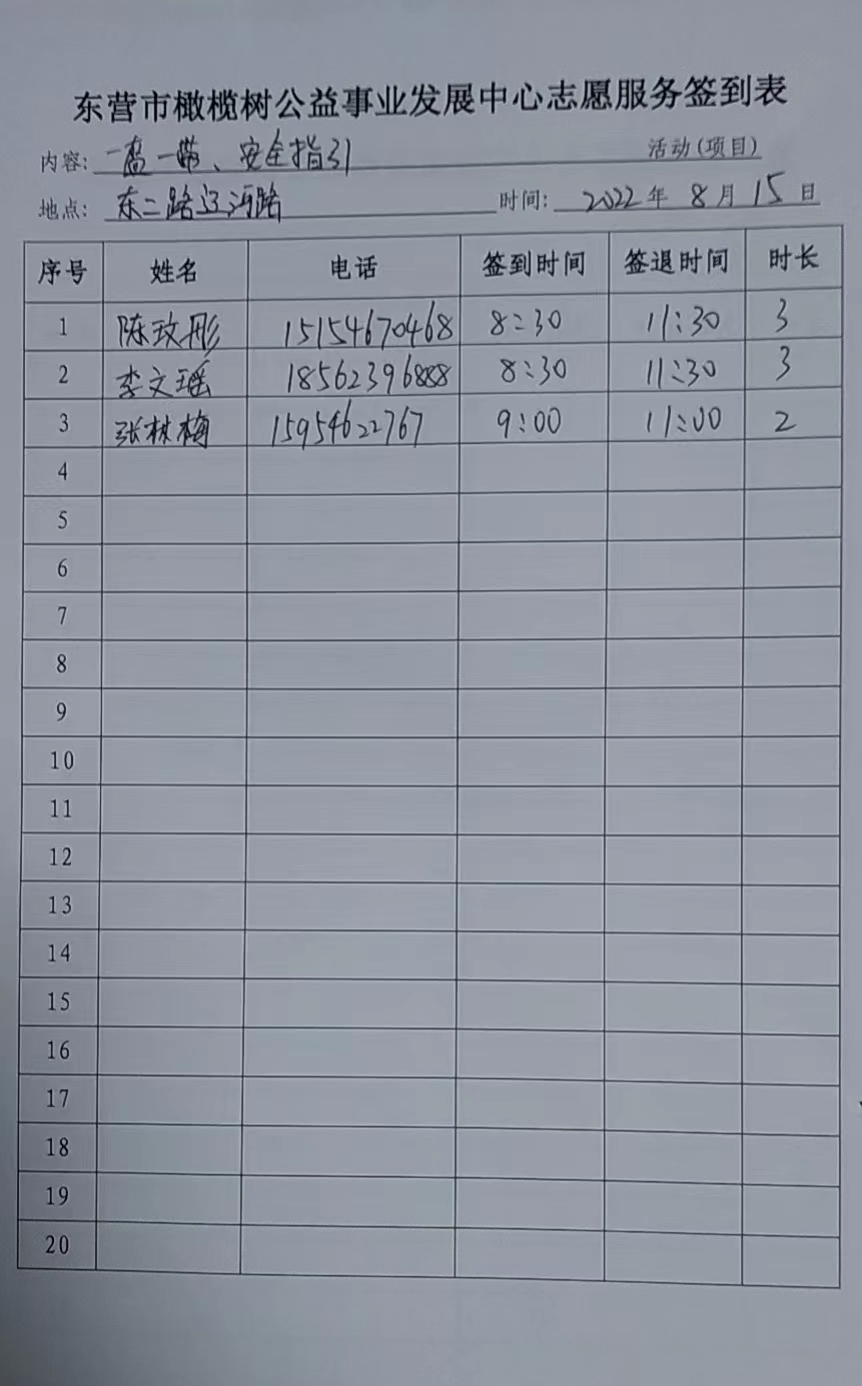 东营市橄榄树公益事业发展中心志愿服务签到表
内容: 一盔一带、安全指引 活动(项目)
地点: 东二路辽河路 时间: 2022年 8月 15日
序号 姓名 电话 签到时间 签退时间 时长
1 陈玫彤 15154670468 8:30 11:30 3
2 李文瑶 18562396888 8:30 11:30 3
3 张林梅 15954622767 9:00 11:00 2
4
5
6
7
8
9
10
11
12
13
14
15
16
17
18
19
20